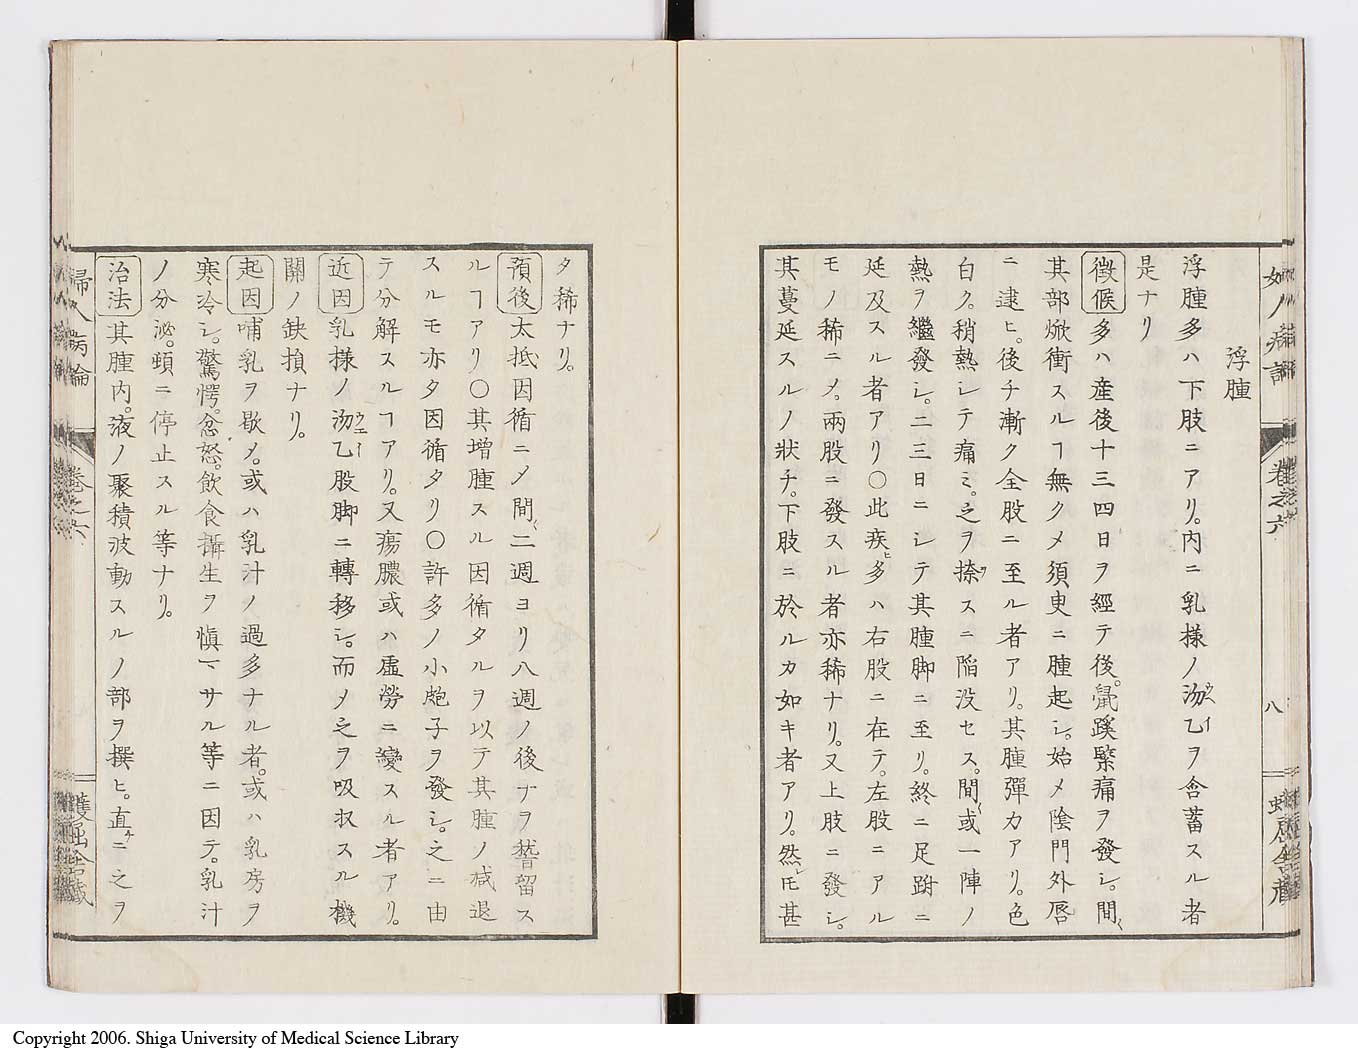 浮腫
浮腫多ハ下肢ニアリ。内ニ乳様ノ沕乙ヲ含蓄スル者
是ナリ
徴候多ハ産後十三四日ヲ經テ後。鼠蹊緊痛ヲ發シ。間〱
其部焮衝スルヿ無クメ須臾ニ腫起シ。始メ陰門外唇
ニ逮ヒ。後チ漸ク全股ニ至ル者アリ。其腫彈力アリ。色
白ク。稍熱シテ痛ミ。之ヲ捺スニ陷没セス。間〱或一陣ノ
熱ヲ繼發シ。二三日ニシテ其腫脚ニ至リ。終ニ足跗ニ
延及スル者アリ〇此疾ヒ多ハ右股ニ在テ。左股ニアル
モノ稀ニメ。兩股ニ發スル者亦稀ナリ。又上肢ニ發シ。
其蔓延スルノ狀チ。下肢ニ於ルカ如キ者アリ。然レ𪜈甚
タ稀ナリ。
預後太抵因循ニメ間〱二週ヨリ八週ノ後ナヲ稽留ス
ルヿアリ〇其增腫スル因循タルヲ以テ其腫ノ减退
スルモ亦タ因循タリ〇許多ノ小皰子ヲ發シ。之ニ由
テ分解スルヿアリ。又瘍膿或ハ虛勞ニ變スル者アリ。
近因乳様ノ沕乙股脚ニ轉移シ。而メ之ヲ吸収スル機
關ノ缺損ナリ。
起因哺乳ヲ歇メ。或ハ乳汁ノ過多ナル者。或ハ乳房ヲ
寒冷シ。驚愕。忿怒。飲食攝生ヲ愼マサル等ニ因テ。乳汁
ノ分泌。頓ニ停止スル等ナリ。
治法其腫内。液ノ聚積波動スルノ部ヲ撰ヒ。直チニ之ヲ
婦人病論
卷之六
八
Copyright 2006. Shiga University of Medical Science Library